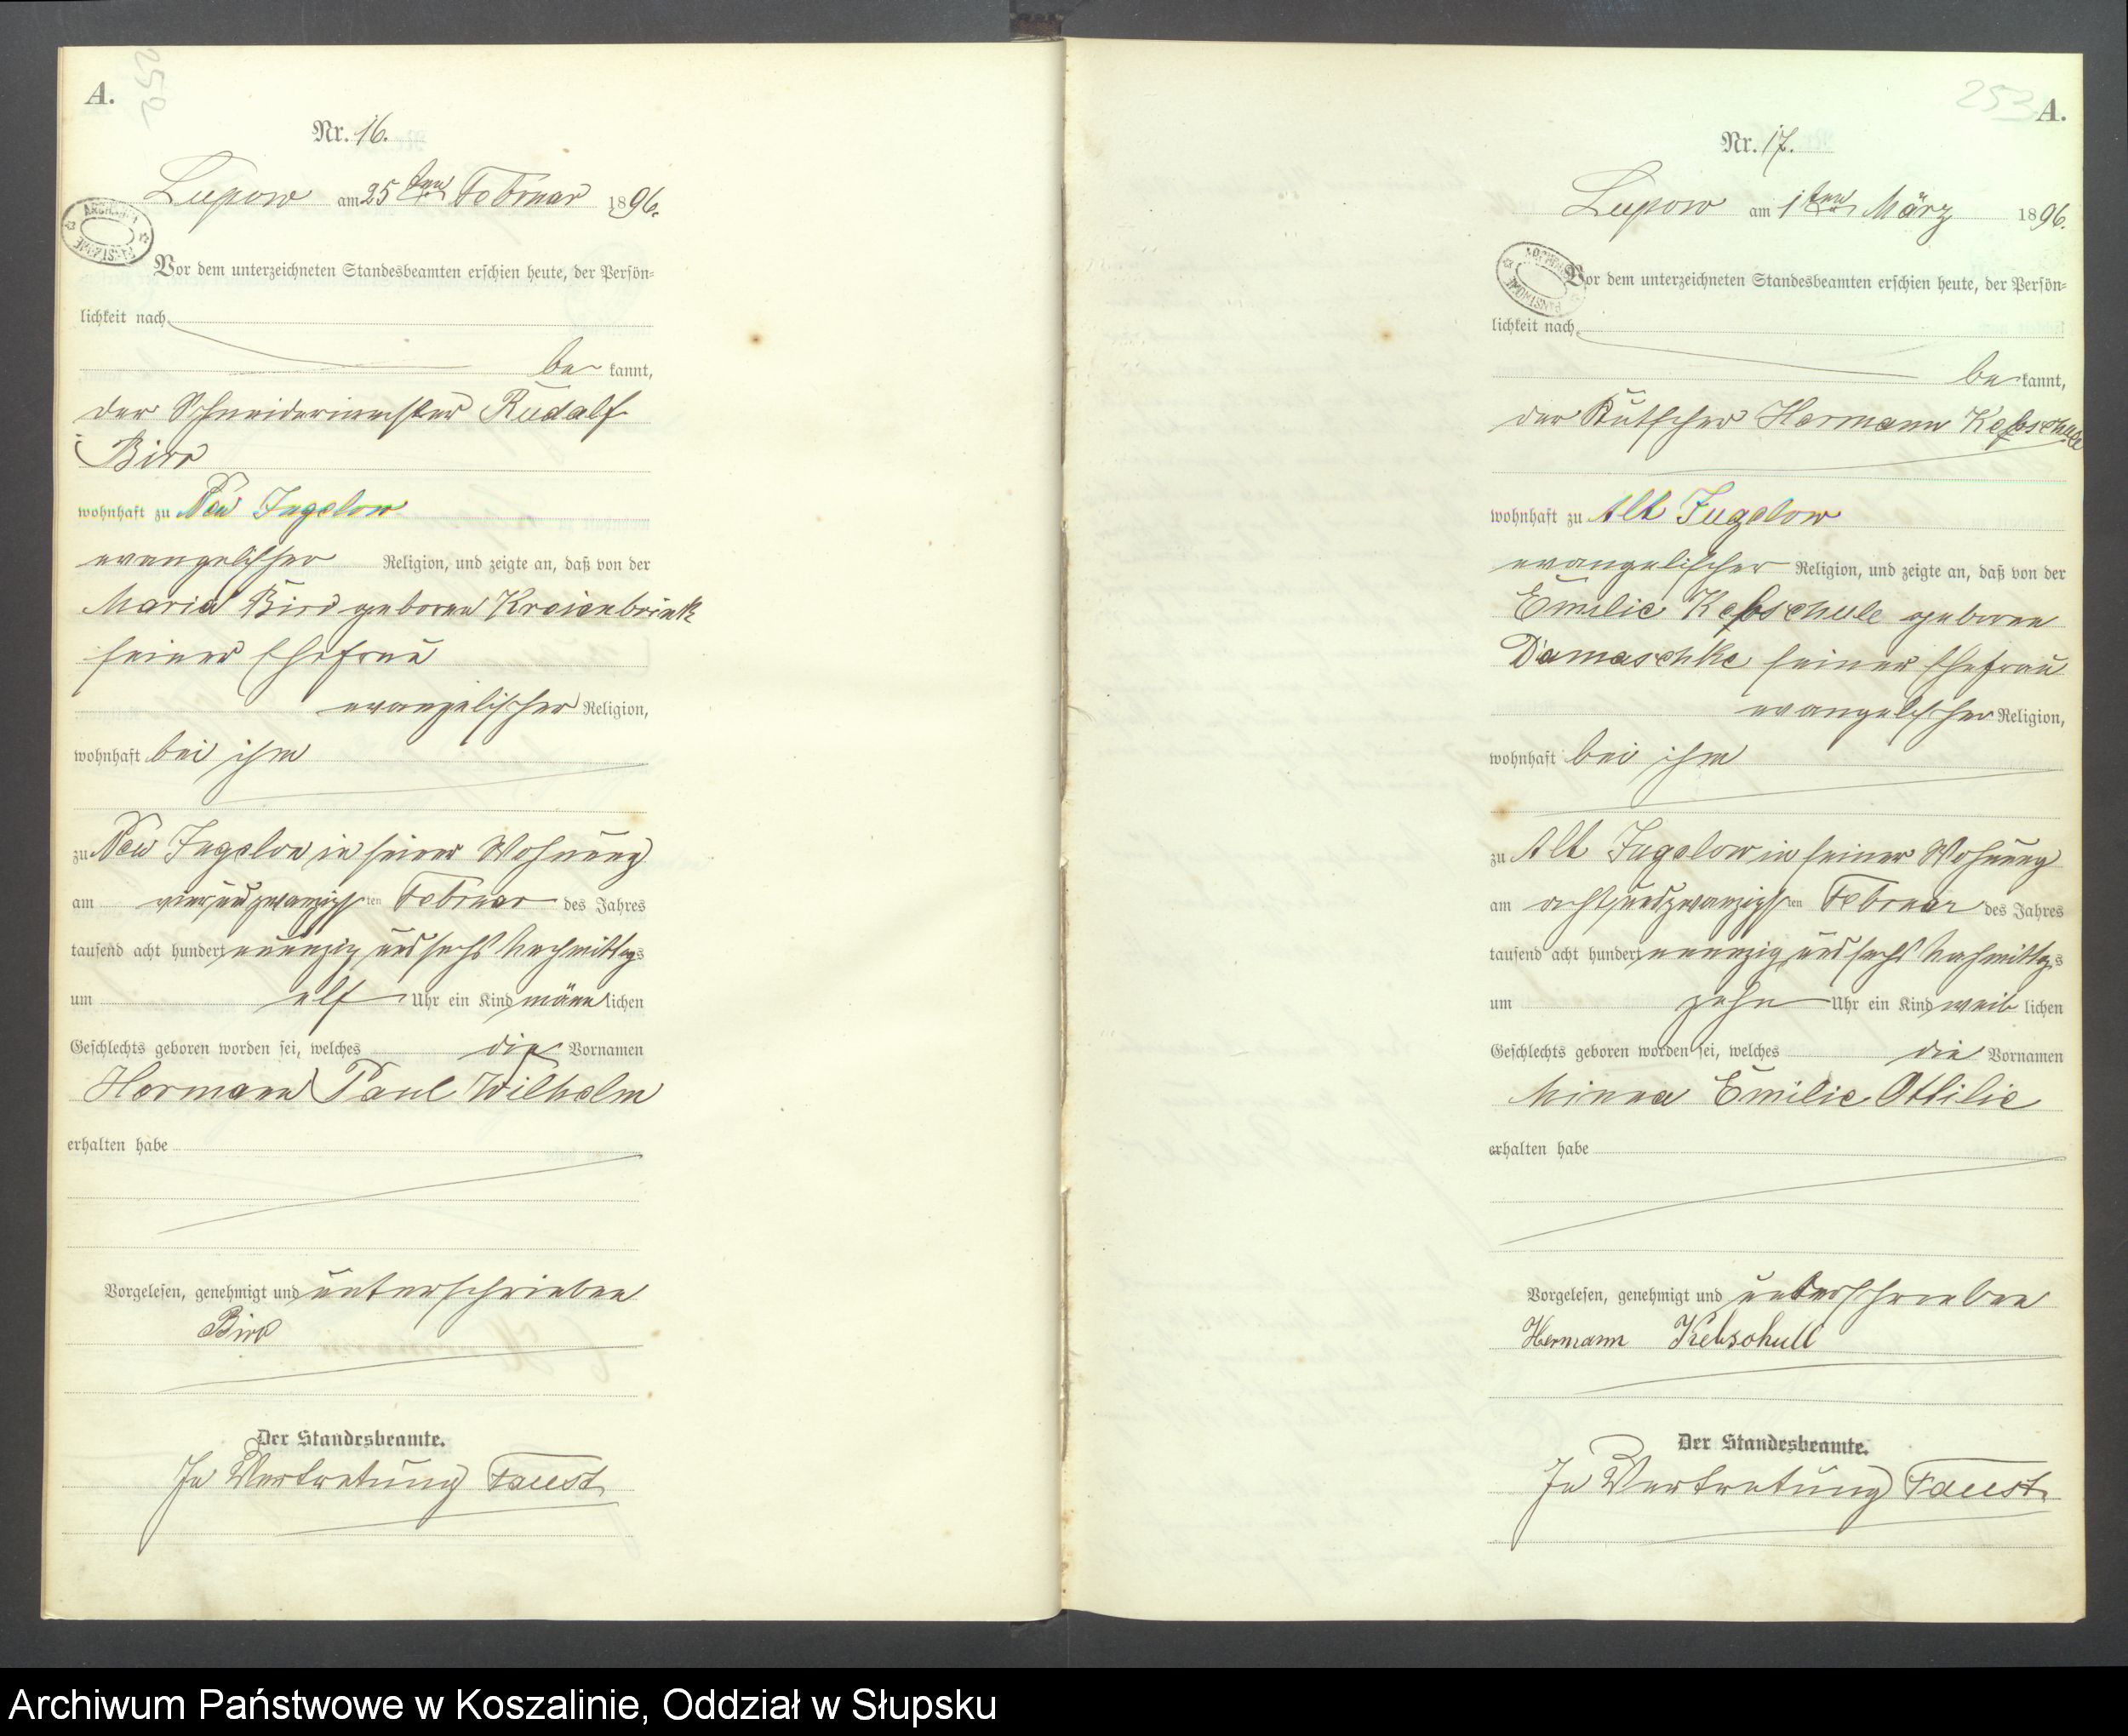 A.
252
Nr. 16.
Lupow am 25ten Februar 1896.
Vor dem unterzeichneten Standesbeamten erschien heute, der Persön=
lichkeit nach
be kannt,
der Schneidermeister Rudolf
Birr
wohnhaft zu Neu Jugelow
evangelischer Religion, und zeigte an, daß von der
Maria Birr geboren Kreienbrink
seiner Ehefrau
evangelischer Religion,
wohnhaft bei ihm
zu Neu Jugelow in seiner Wohnung
am vierundzwanzigsten Februar des Jahres
tausend acht hundert neunzig und sechs Nachmittags
um elf Uhr ein Kind männlichen
Geschlechts geboren worden sei, welches die Vornamen
Hermann Paul Wilhelm
erhalten habe
Vorgelesen, genehmigt und unterschrieben
Birr
Der Standesbeamte.
In Vertretung Faust
253
A.
Nr. 17.
Lupow am 1ten März 1896.
Vor dem unterzeichneten Standesbeamten erschien heute, der Persön=
lichkeit nach
be kannt,
der Kutscher Hermann Kebschull
wohnhaft zu Alt Jugelow
evangelischer Religion, und zeigte an, daß von der
Emilie Kebschull geboren
Damaschke seiner Ehefrau
evangelischer Religion,
wohnhaft bei ihm
zu Alt Jugelow in seiner Wohnung
am achtundzwanzigsten Februar des Jahres
tausend acht hundert neunzig und sechs Nachmittags
um zehn Uhr ein Kind weiblichen
Geschlechts geboren worden sei, welches die Vornamen
Minna Emilie Ottilie
erhalten habe
Vorgelesen, genehmigt und unterschrieben
Hermann Kebschull
Der Standesbeamte.
In Vertretung Faust
Archiwum Państwowe w Koszalinie, Oddział w Słupsku